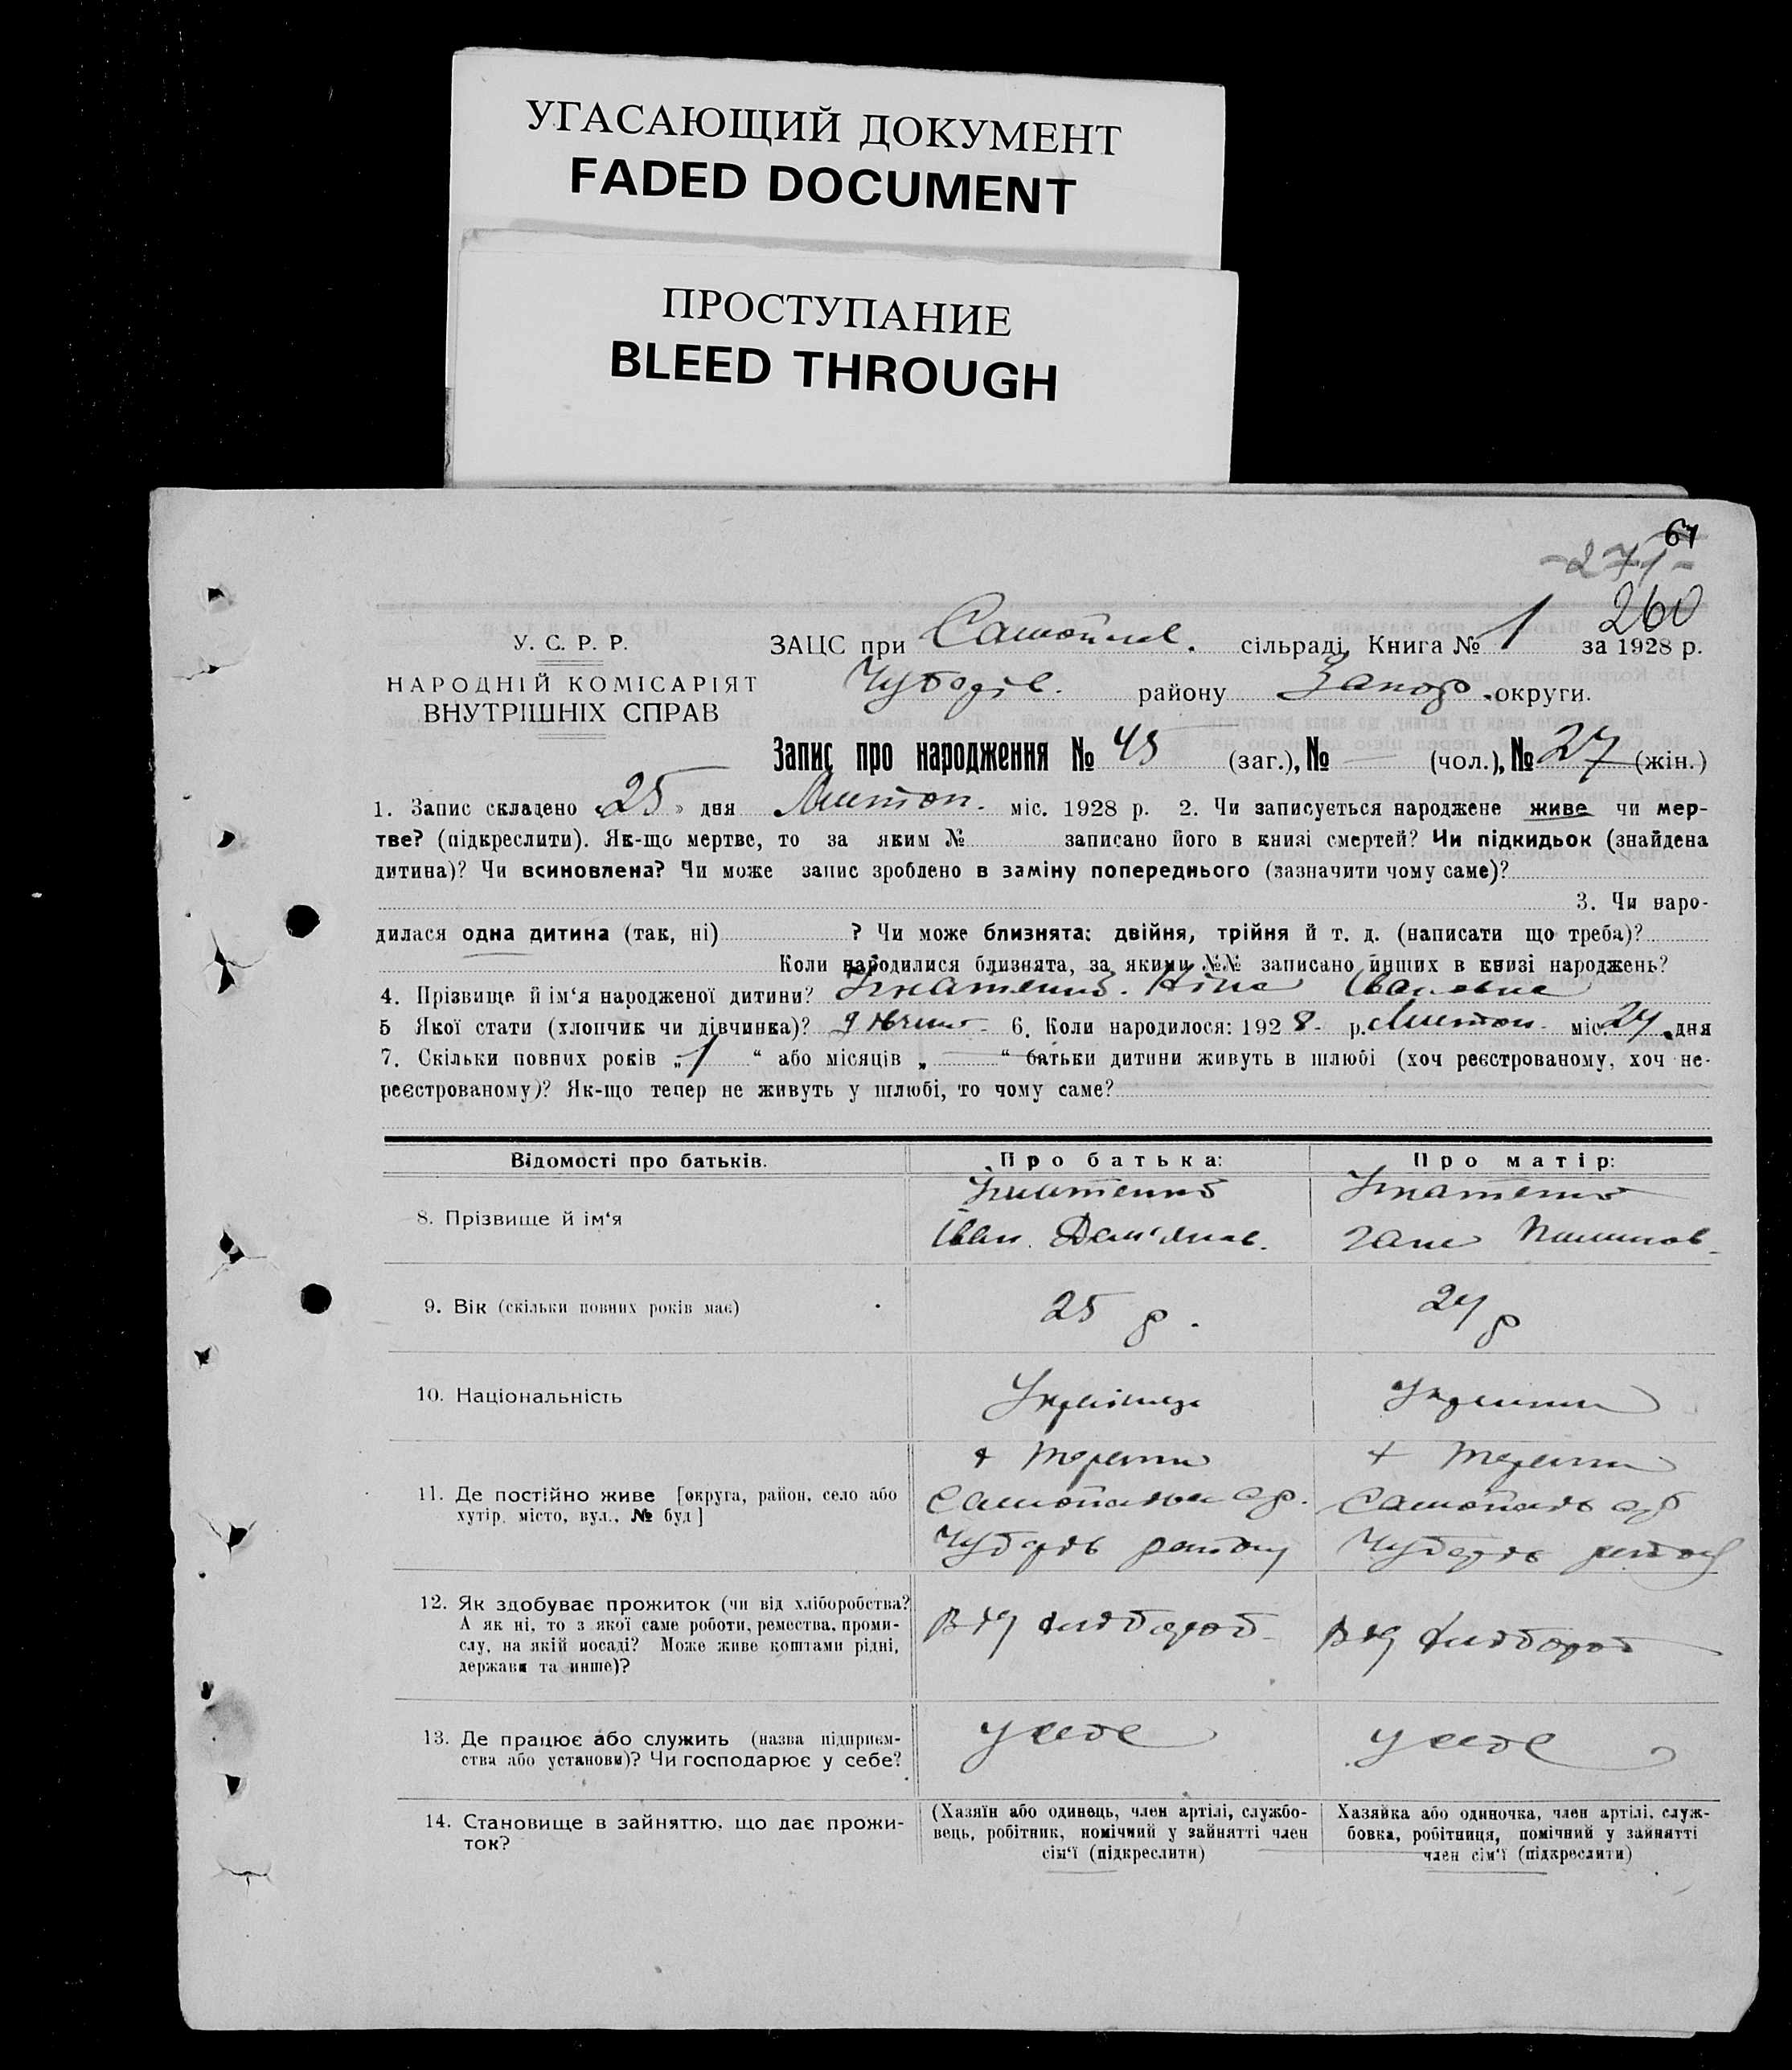 УГАСАЮЩИЙ ДОКУМЕНТ
FADED DOCUMENT
ПРОСТУПАНИЕ
BLEED THROUGH
61
-271-
260
У. С. Р. Р.
НАРОДНІЙ КОМІСАРІЯТ
ВНУТРІШНІХ СПРАВ
ЗАЦС при Самойлов. сільраді, Книга № 1 за 1928 р.
Чубарів. району Запор. округи.
Запис про народження № 45 (заг.), № — (чол.), № 27 (жін.)
1. Запис складено „25" дня Листоп. міс. 1928 р. 2. Чи записується народжене живе чи мер-
тве? (підкреслити). Як-що мертве, то за яким № записано його в книзі смертей? Чи підкидьок (знайдена
дитина)? Чи всиновлена? Чи може запис зроблено в заміну попереднього (зазначити чому саме)?
3. Чи наро-
дилася одна дитина (так, ні) ? Чи може близнята: двійня, трійня й т. д. (написати що треба)?
Коли народилися близнята, за якими №№ записано инших в книзі народжень?
4. Прізвище й ім‘я народженої дитини? Ігнатенко Ніна Івановна
5 Якої стати (хлопчик чи дівчинка)? дівчин. 6. Коли народилося: 1928 р. Листоп. міс. 24 дня
7. Скільки повних років „1“ або місяців „—“ батьки дитини живуть в шлюбі (хоч реєстрованому, хоч не-
реєстрованому)? Як-що тепер не живуть у шлюбі, то чому саме?
Відомості про батьків.
Про батька:
Про матір:
8. Прізвище й ім‘я
Ігнатенко
Іван Дем‘янов.
Ігнатенко
9. Вік (скільки повних років має)
25 р.
24 р
10. Національність
Українець
Українка
11. Де постійно живе [округа, район, село або
хутір, місто, вул., № буд]
Самойлів с р.
Чубарів району
Самойлів с р
Чубарів району
12. Як здобуває прожиток (чи від хліборобства?
А як ні, то з якої саме роботи, ремества, проми-
слу, на якій посаді? Може живе коштами рідні,
держави та инше)?
Від хлібороб.
Від хлібороб
13. Де працює або служить (назва підприєм-
ства або установи)? Чи господарює у себе?
у себе
у себе
14. Становище в зайняттю, що дає прожи-
ток?
(Хазяїн або одинець, член артілі, службо-
вець, робітник, помічний у зайнятті член
сім‘ї (підкреслити)
Хазяйка або одиночка, член артілі, служ-
бовка, робітниця, помічний у зайнятті
член сім‘ї (підкреслити)